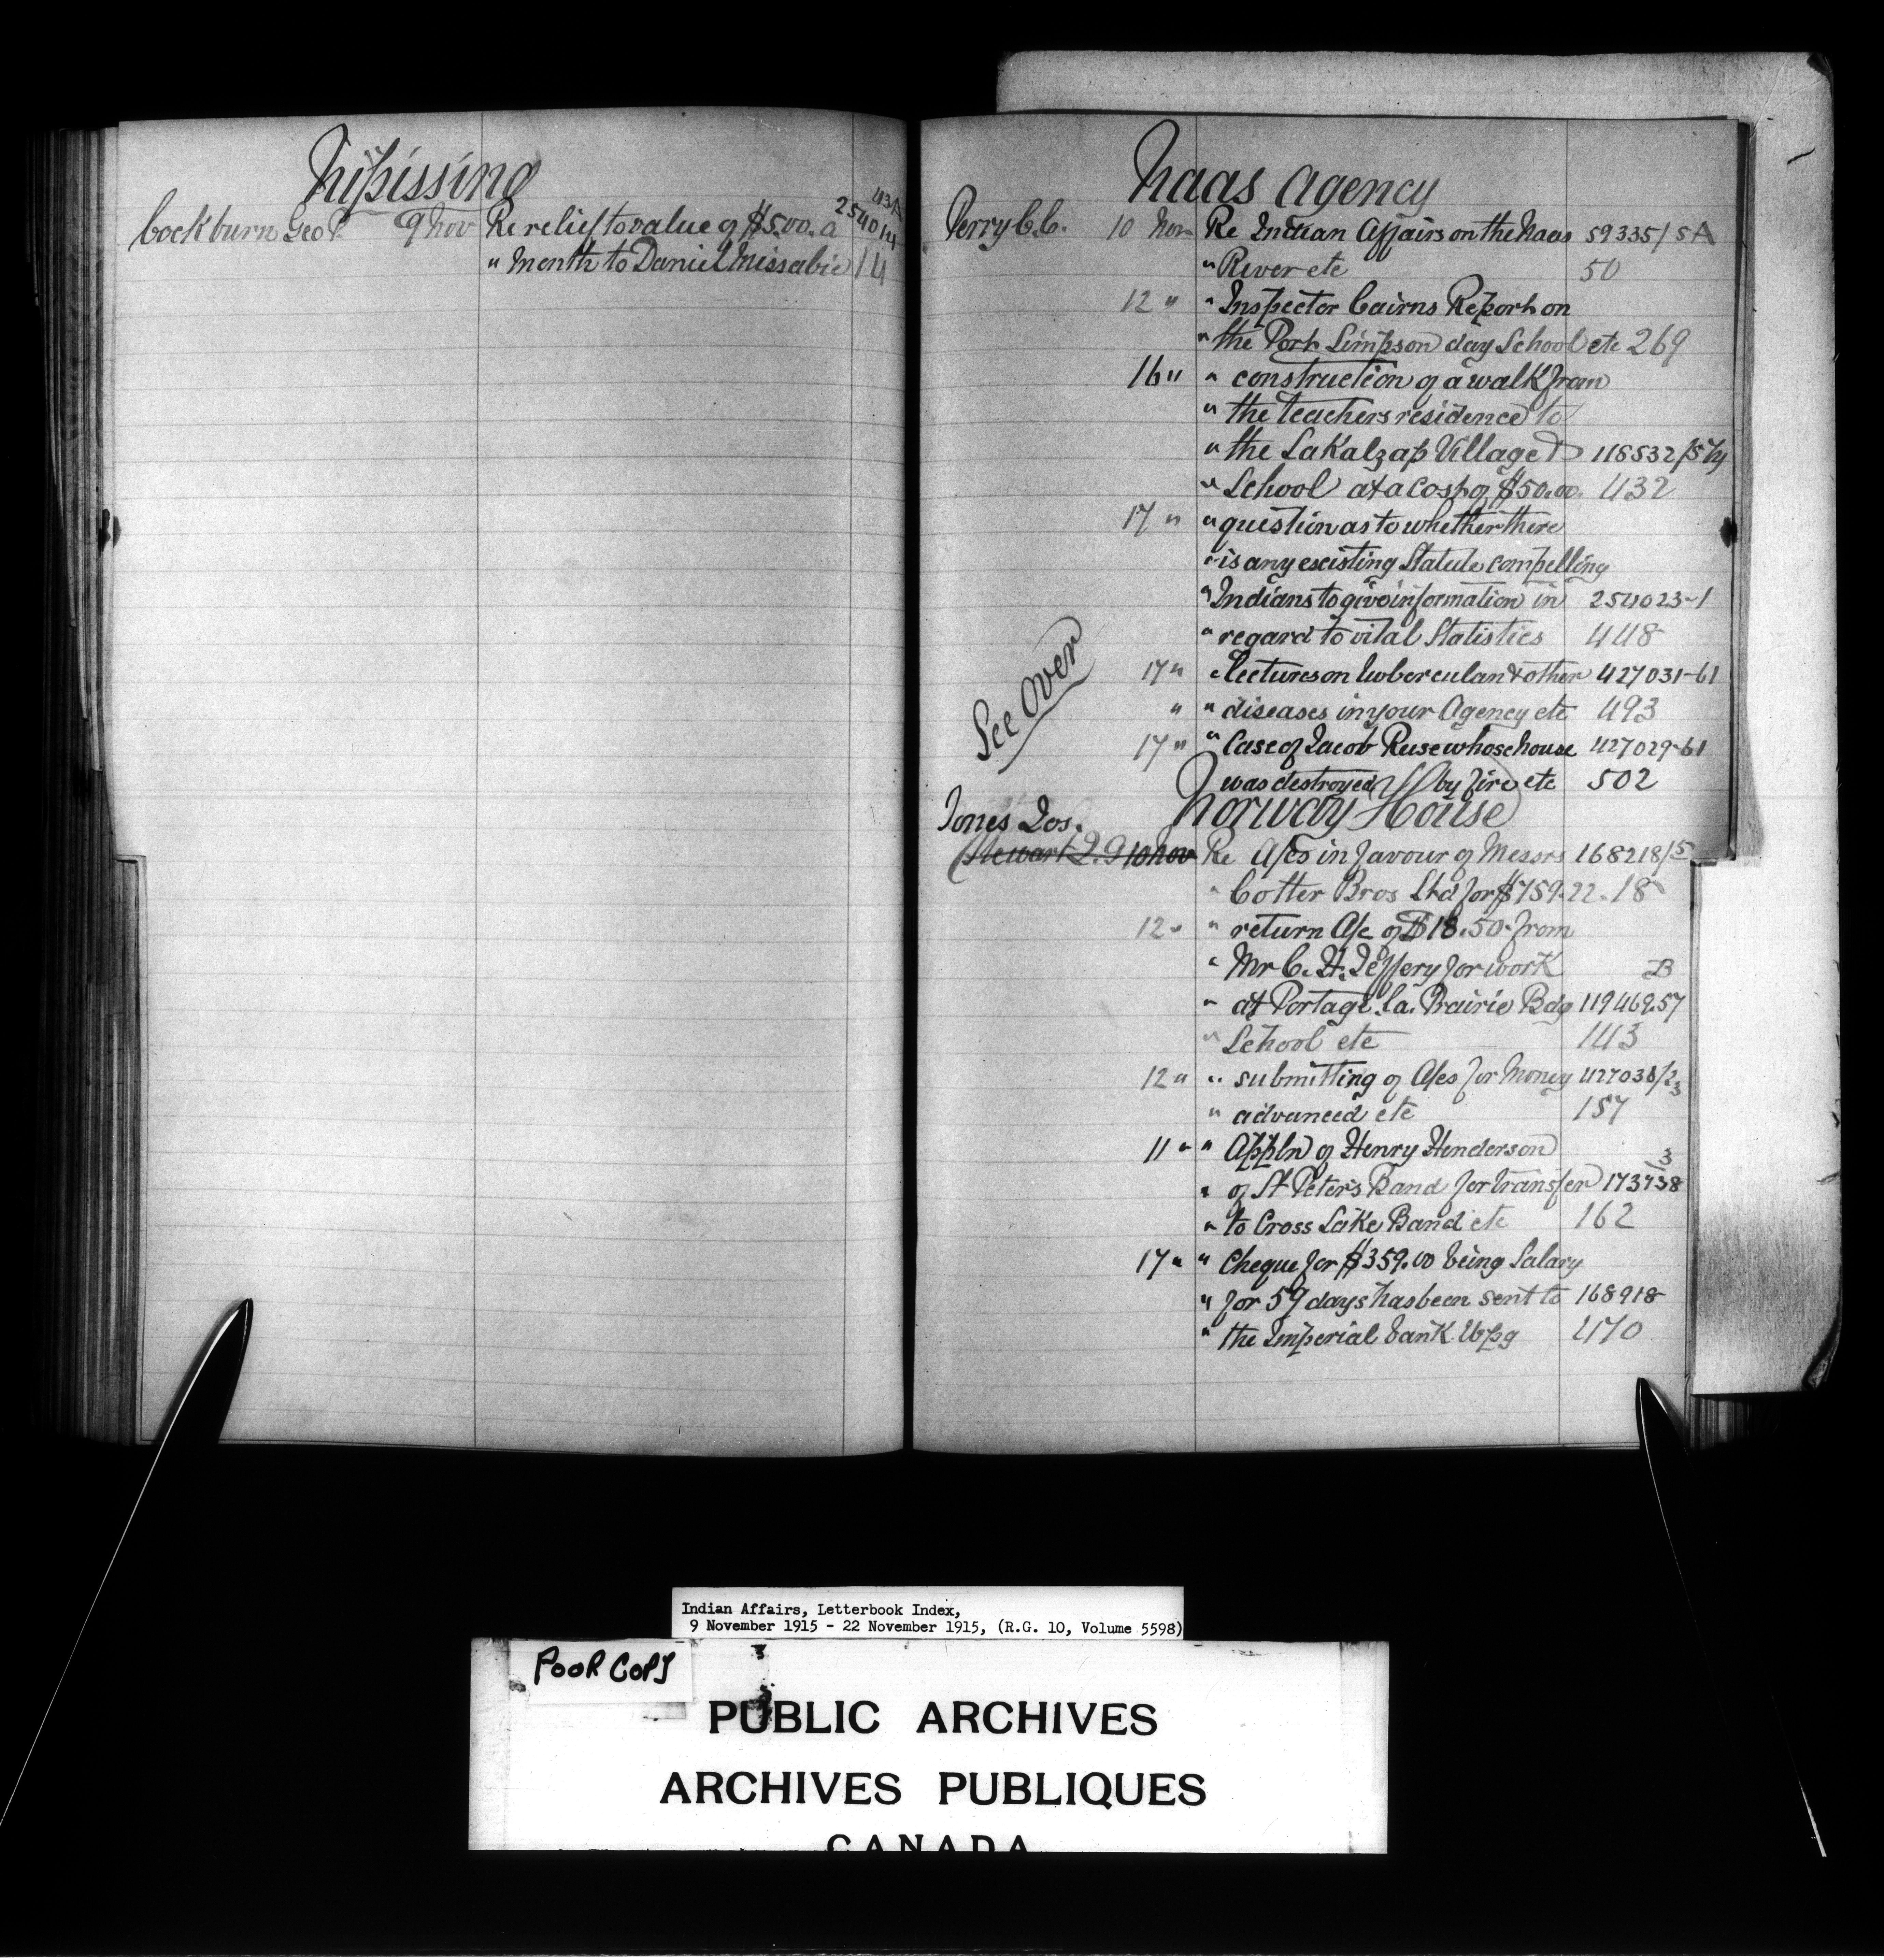 Nipissing
43A
Cockburn Geo P. 9 Nov Re relief to value of $5.00. a 254014
" Month to Daniel Missabie 14
Naas Agency
Perry C.C. 10 Nov Re Indian Affairs on the Naas 59335/5A
" River etc 50
12 " " Inspector Cairns Report on
" the Port Simpson day School etc 269
16 " " construction of a walk from
" the teachers residence to
" the Lakalzap Village D 118532/5
" School at a cost of $50.00. 432
17 " " question as to whether there
" is any existing Statute compelling
" Indians to give information in 254023-1
" regard to vital Statistics 448
See Over
17 " " lectures on tubercular & other 427031-61
" " diseases in your Agency etc 493
17 " " Case of Jacob Ruse whose house 427029-61
was destroyed by fire etc 502
Norway House
Jones Jos.
Stewart J. G 10 Nov Re A/cs in favour of Messrs 168218/5
" Cotter Bros Ltd for $759.22. 18
12 " " return A/c of $18.50 from
" Mr C. H. Jeffery for work B
" at Portage la. Prairie Bdg 119469.57
" School etc 143
12 " " submitting of A/cs for Money 427038/23
" advanced etc 157
11 " " Appln of Henry Henderson 3
" of St Peter's Band for transfer 173738
" to Cross Lake Band etc 162
17 " " Cheque for $359.00 being Salary
" for 59 days has been sent to 168918
" the Imperial bank Wpg 470
Indian Affairs, Letterbook Index,
9 November 1915 - 22 November 1915, (R.G. 10, Volume 5598)
POOR COPY
PUBLIC ARCHIVES
ARCHIVES PUBLIQUES
CANADA